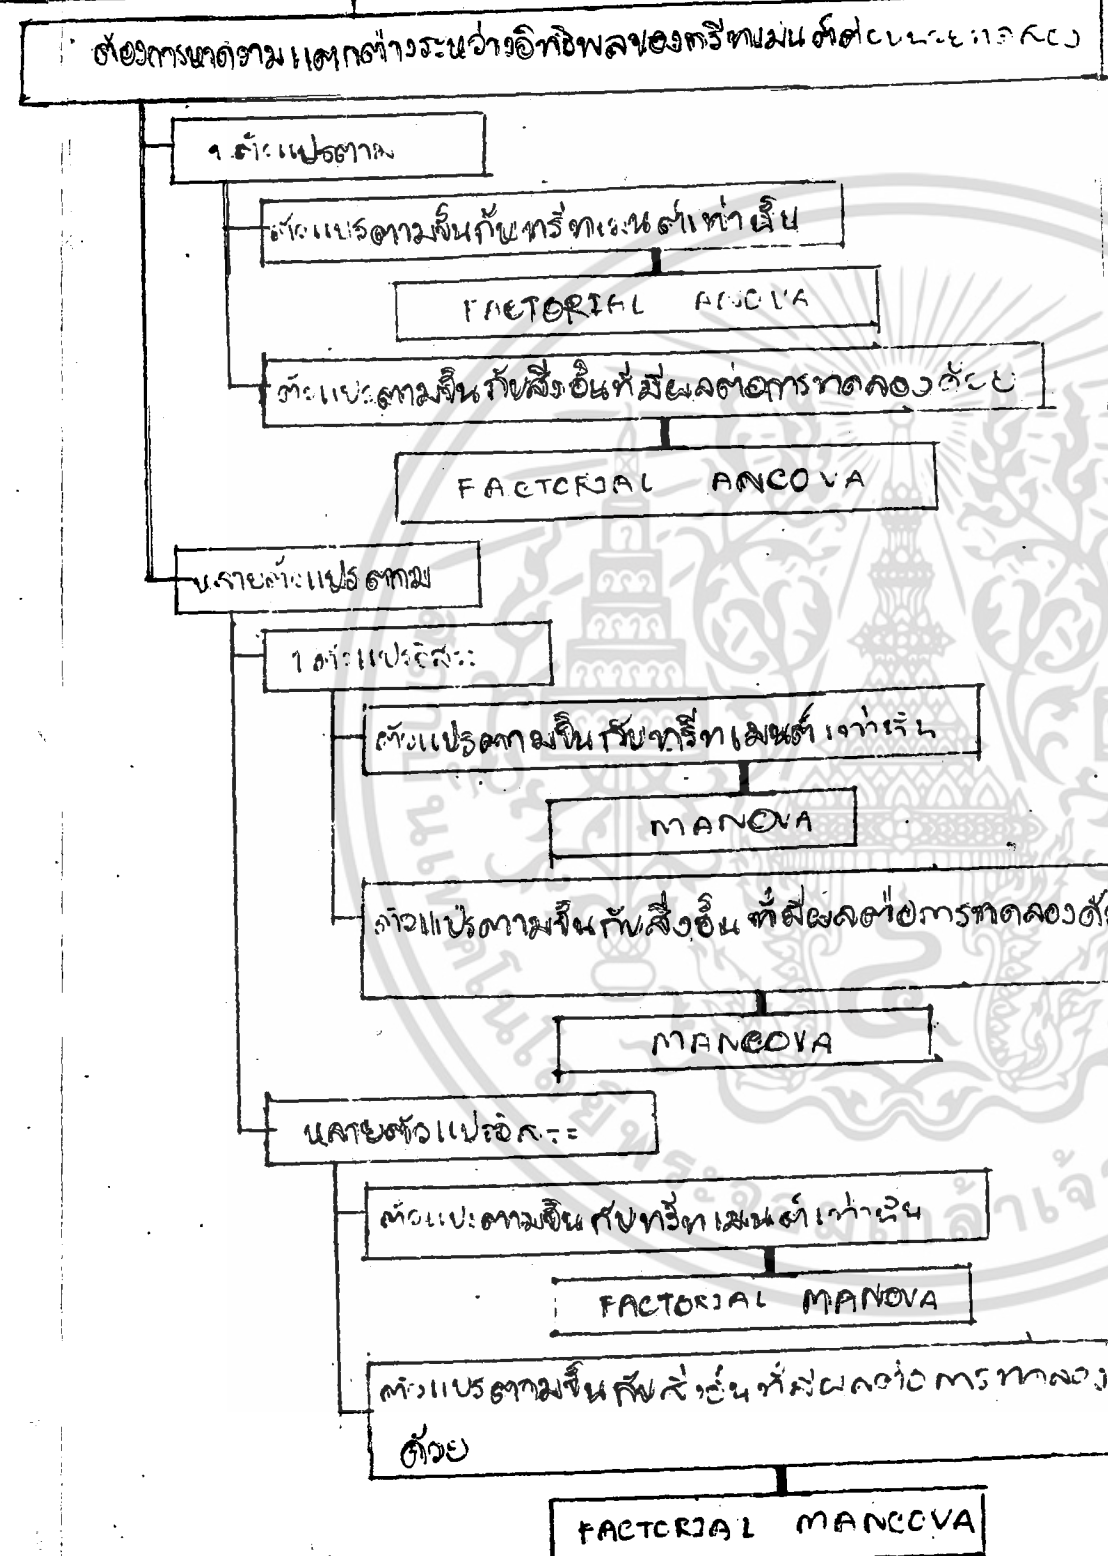 ต้องการหาความแตกต่างระหว่างอิทธิพลของทรีทเมนต์ต่อหน่วยทดลอง
1 ตัวแปรตาม
ตัวแปรตามขึ้นกับทรีทเมนต์เท่านั้น
FACTORIAL ANOVA
ตัวแปรตามขึ้นกับสิ่งอื่นที่มีผลต่อการทดลองด้วย
FACTORIAL ANCOVA
หลายตัวแปรตาม
1 ตัวแปรอิสระ
ตัวแปรตามขึ้นกับทรีทเมนต์เท่านั้น
MANOVA
ตัวแปรตามขึ้นกับสิ่งอื่น ที่มีผลต่อการทดลองด้วย
MANCOVA
หลายตัวแปรอิสระ
ตัวแปรตามขึ้นกับทรีทเมนต์เท่านั้น
FACTORIAL MANOVA
ตัวแปรตามขึ้นกับสิ่งอื่นที่มีผลต่อการทดลอง
ด้วย
FACTORIAL MANCOVA